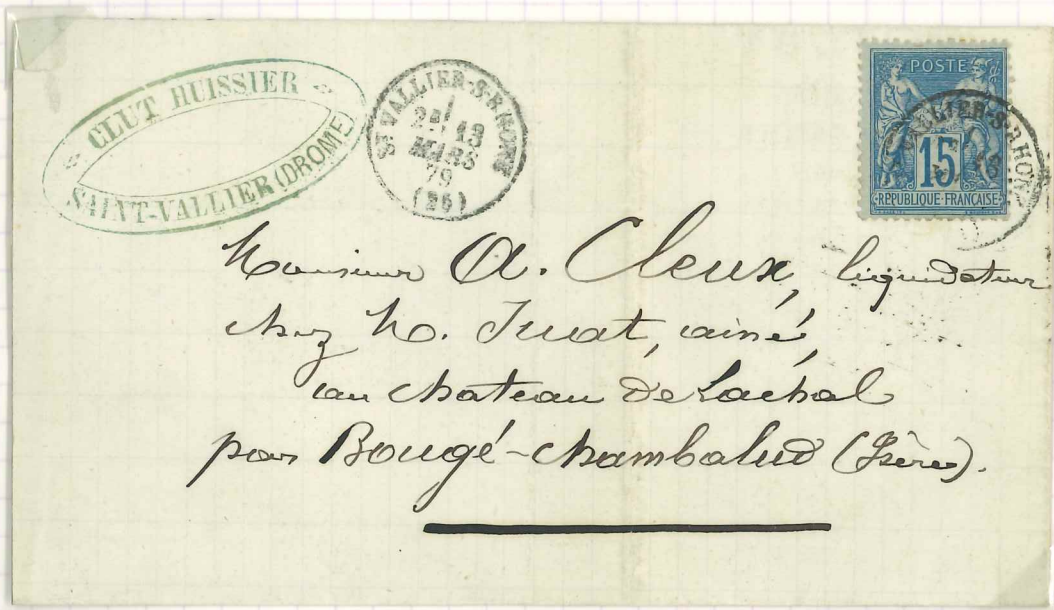 CLUT HUISSIER
SAINT-VALLIER (DROME)
ST VALLIER-S-RHONE
2E 13
MARS
79
(25)
POSTE
15
REPUBLIQUE FRANCAISE
VALLIER-S-RHONE
13
Monsieur A. Cleux, liquidateur
chez M. Juat, ainé,
au chateau de Lachal
par Bougé-Chambalud (Isère).